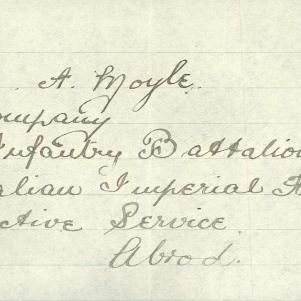 . A. Moyle.
ompany
Infantry Battalion
alian Imperial
ctive Service.
Abrod.